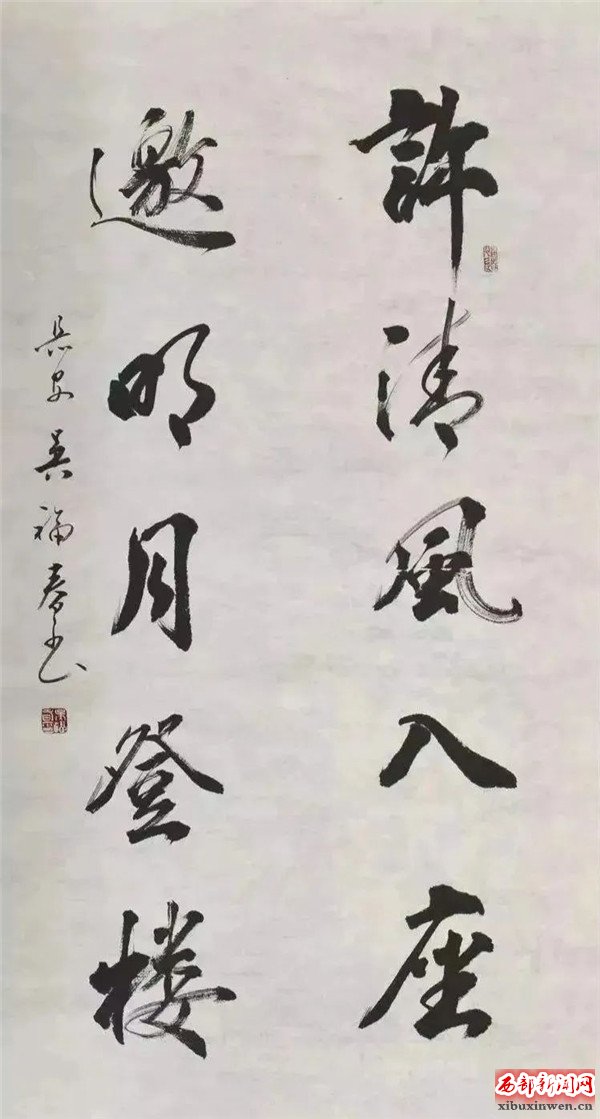 許清風入座
邀明月登楼
吴福春书
西部新闻网
xibuxinwen.cn